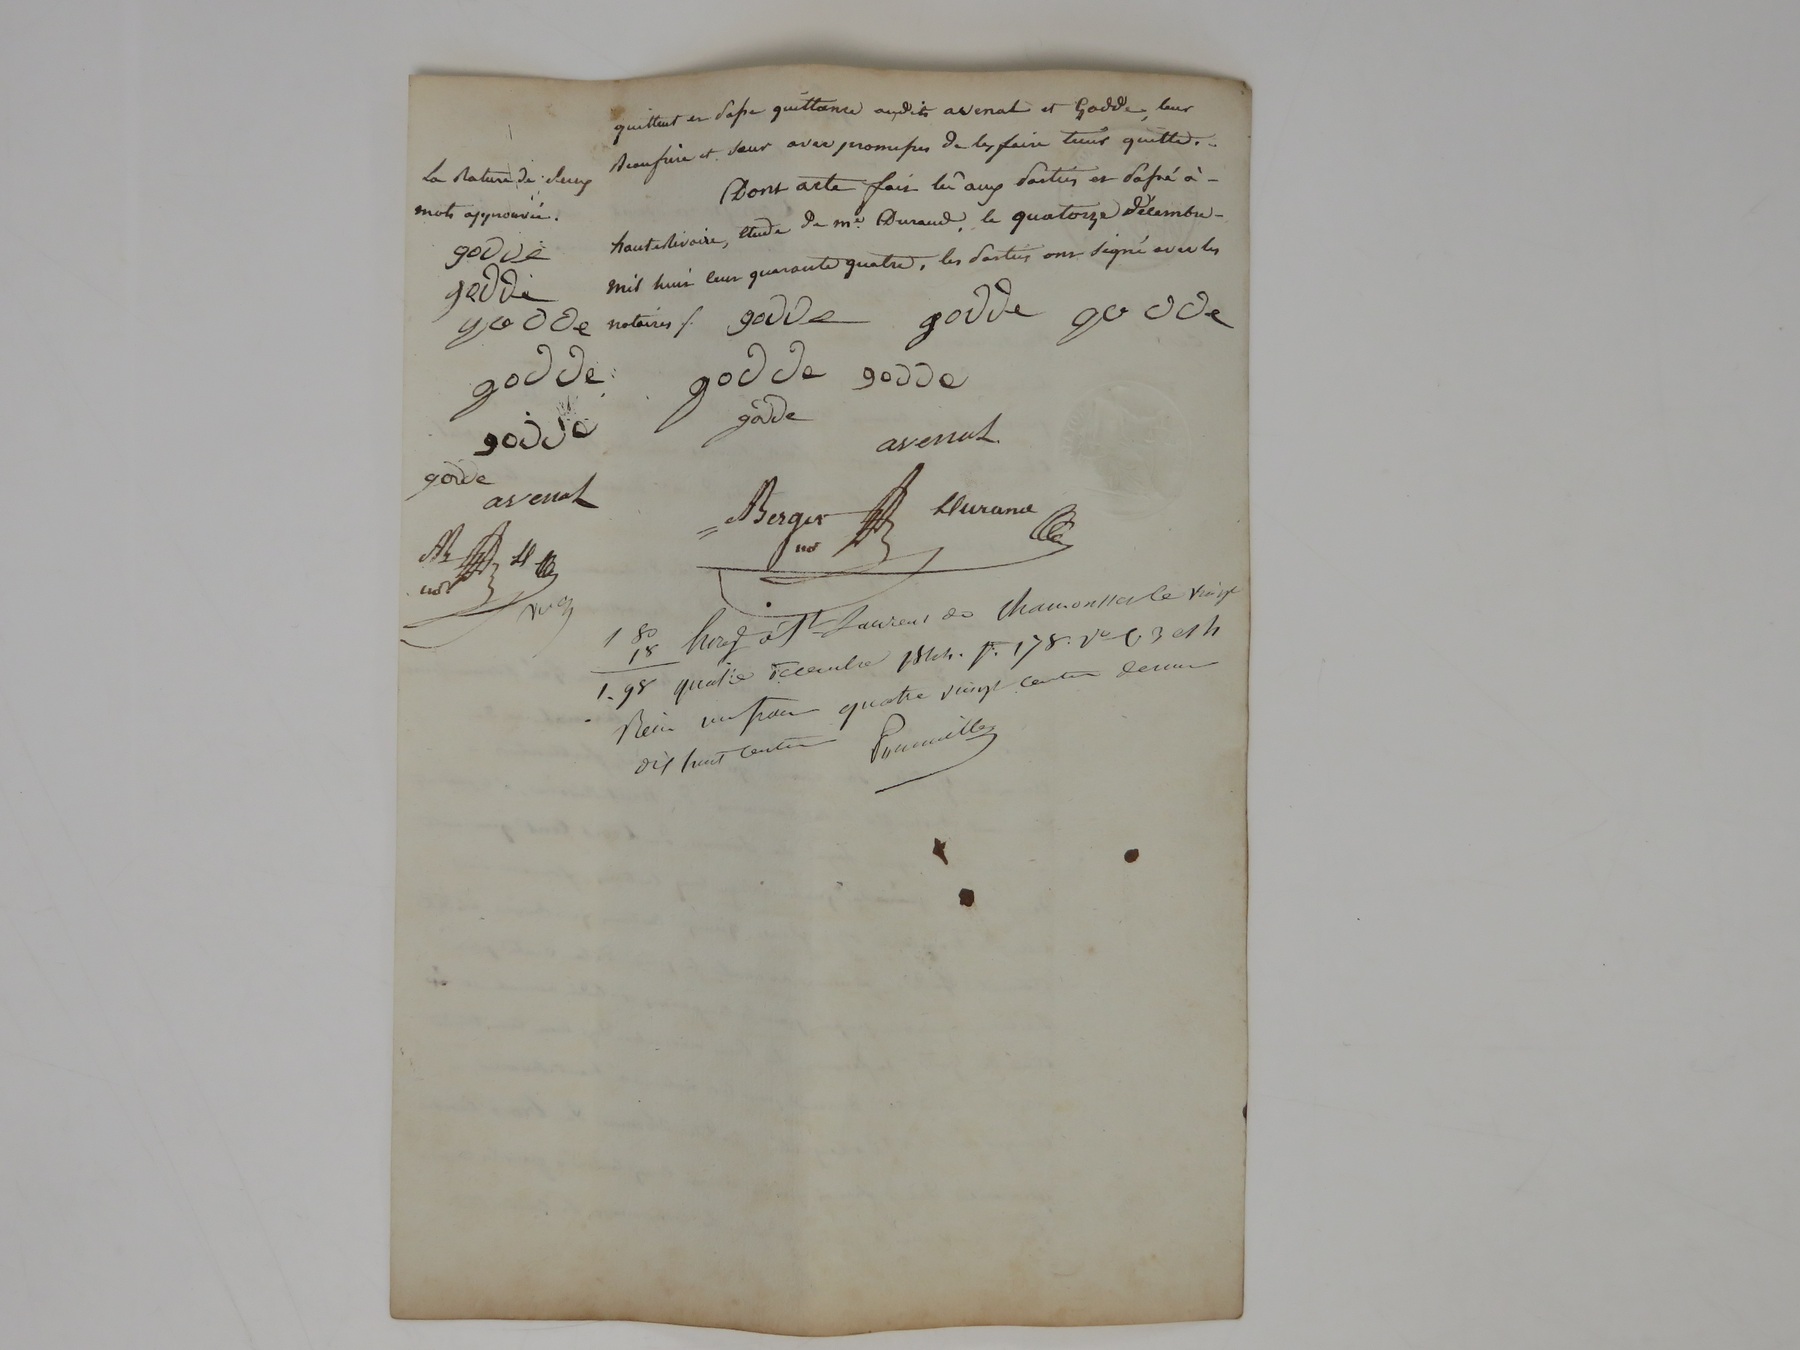 quittent en passe quittance audits avenat et Godde, leur
Beaufrère et soeur avec promesses de les faire tenir quittes.
Dont acte fait lû aux parties et passé à
hauterivoire, étude de me. Durand, le quatorze décembre
mil huit cent quarante quatre, les parties ont signé avec les
notaires /.
godde godde godde
godde godde
godde
avenat
Berger Durand
not
La Rature de deux
mots approuvée.
godde
godde
godde
godde
godde
godde
avenat
not
1 80
18
1.98
à St Laurent de Chamousset le vingt
quatre décembre 1844. f. 178. Vo C. 3 et 4
Reçu un franc quatre vingt centimes decime
dix huit centimes